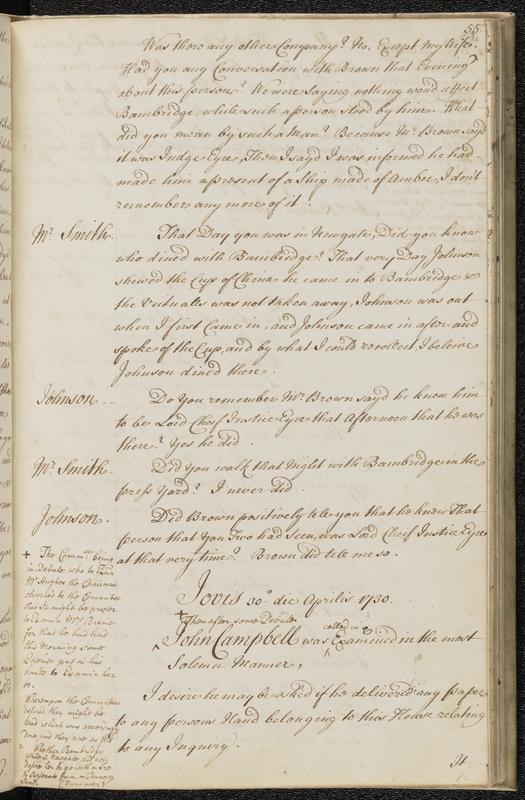 55
Was there any other Company? No, Except my Wife.
Had you any Conversation with Brown that Evening
about this person? We were saying nothing would affect
Bambridge while such a person stood by him. What
did you mean by such a Man? Because Mr. Brown said
it was Judge Eyre, Then I sayd I was informed he had
made him a present of a Ship made of Amber, I don't
remember any more of it.
Mr. Smith. That Day you was in Newgate, Did you know
who dined with Bambridge? That very Day Johnson
shewed the Cup of China he came in to Bambridge &
the Victualls was not taken away, Johnson was out
when I first Came in, and Johnson came in after and
spoke of the Cup, and by what I could recollect, I beleive
Johnson dined there.
Johnson. Do you remember Mr. Brown sayd he knew him
to be Lord Cheif Justice Eyre that Afternoon that he was
there? Yes he did.
Mr. Smith. Did you walk that Night with Bambridge in the
press Yard? I never did.
Johnson. Did Brown positively tele you that he knew That
person that you Two had seen, was Lord Cheif Justice Eyre
at that very time? Brown did tele me so.
Jovis 30o. die Aprilis 1730.
+ Then after some Debate
called in &
John Campbell was Examined in the most
Solemn Manner,
I desire he may be asked if he delivered any paper
to any persons Hand belonging to this House relating
to any Inquiry.
It
+ The Commee. being
in debate who to Exam
Mr. Hughes the Chairman
observed to the Committee
that It might be proper
to Examine Mrs.
for that he had had
this Morning some
Queries put in his
hands to Examin her
to.
Whereupon the Committee
desired they might be
read which was accordingly
done, and they are as foll
1. Whether Bambridge
whilst in Newgate did not
desire her to go with a
to
(Turnover)